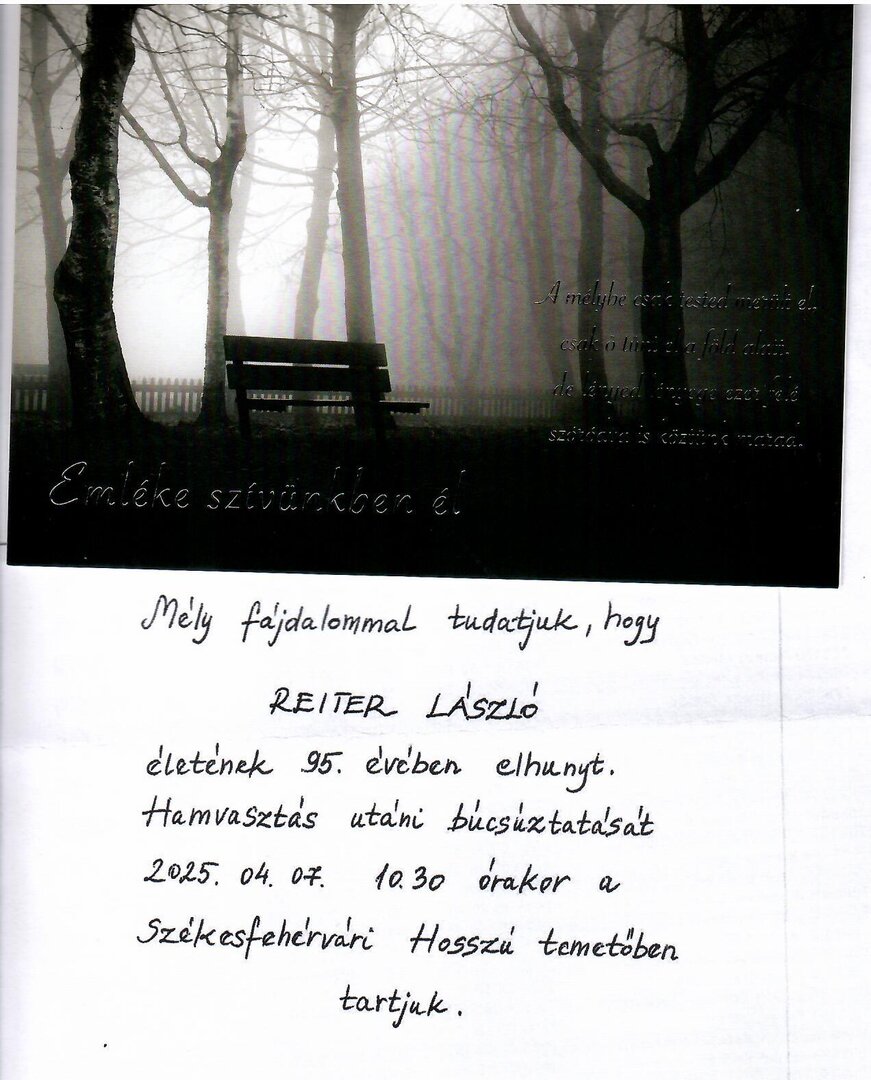 A mélybe csak tested merült el,
csak ő tűnt el a föld alatt,
de lényed lényege ezer felé
szóródva is köztünk marad.
Emléke szívünkben él
Mély fájdalommal tudatjuk, hogy
REITER LÁSZLÓ
életének 95. évében elhunyt.
Hamvasztás utáni búcsúztatását
2025. 04. 07. 10.30 órakor a
Székesfehérvári Hosszú temetőben
tartjuk.